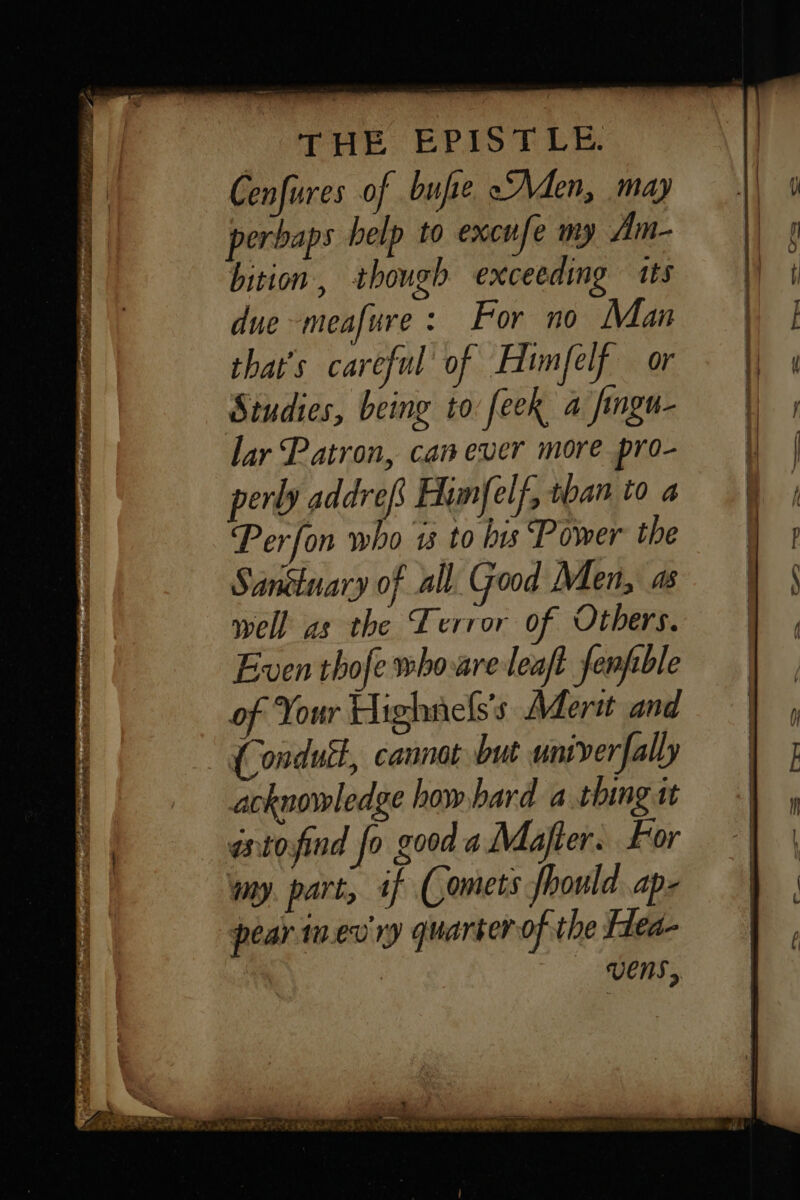 THE EPISTLE.
Cenſures of buſie Men, may
perhaps help to excuſe my Am-
bition, though exceeding its
due meaſure: For no Man
that's careful of Himſelf or
Studies, being to ſeek a ſingu-
lar Patron, can ever more pro-
perly addreſs Himſelf, than to a
Perſon who is to his Power the
Sanctuary of all Good Men, as
well as the Terror of Others.
Even thoſe who are leaſt ſenſible
of Your Highneſs's Merit and
Conduct, cannot but univerſally
acknowledge how hard a thing it
is to find ſo good a Maſter. For
my part, if Comets ſhould ap-
pear in ev'ry quarter of the Hea-
vens,